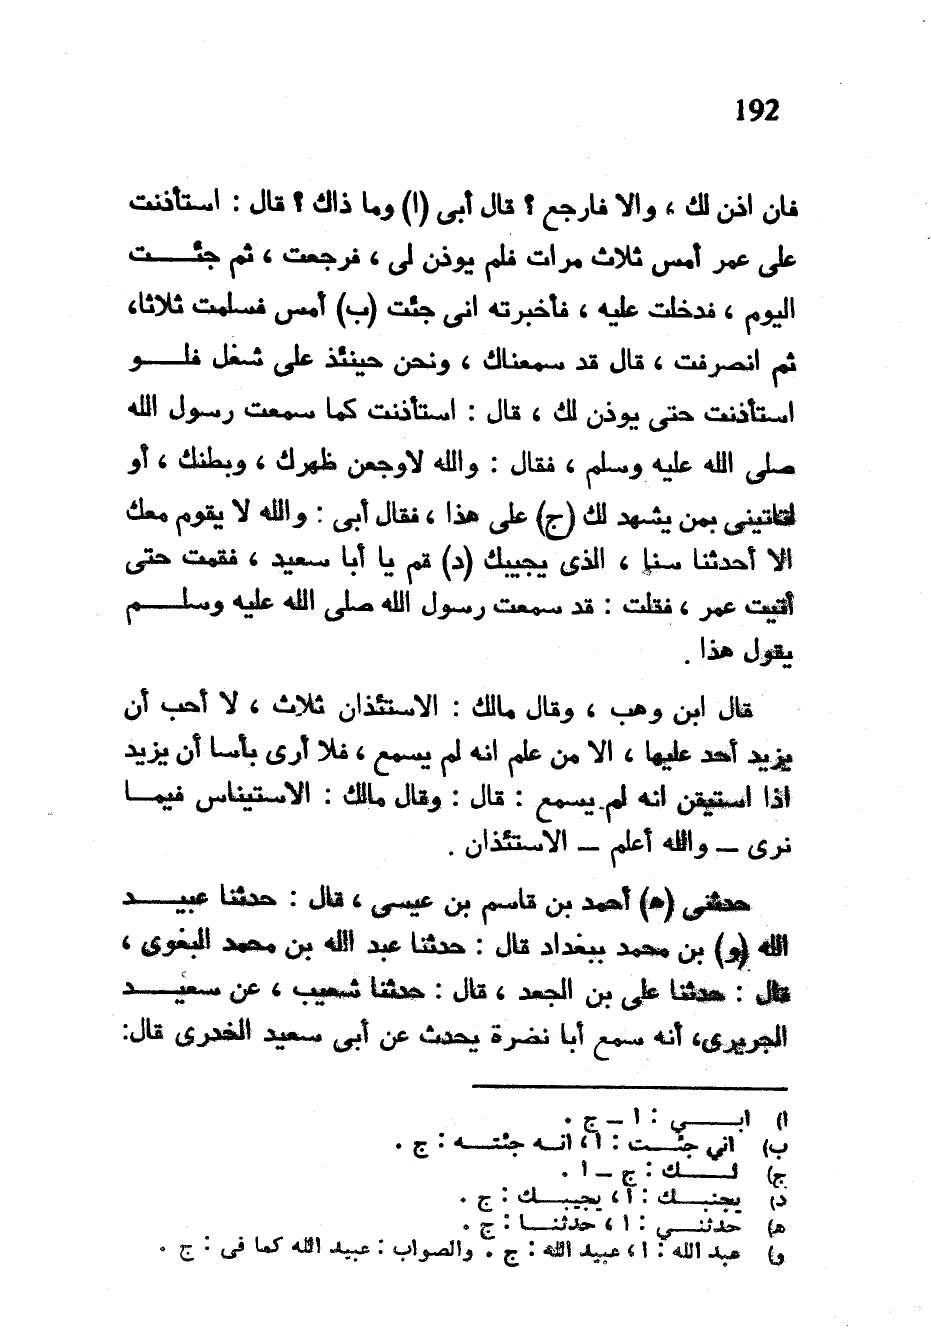 192
فان اذن لك ، والا فارجع ؟ قال أبى (ا) وما ذاك ؟ قال : استأذنت
على عمر أمس ثلاث مرات فلم يوذن لى ، فرجعت ، ثم جئـــت
اليوم ، فدخلت عليه ، فأخبرته انى جئت (ب) أمس فسلمت ثلاثا،
ثم انصرفت ، قال قد سمعناك ، ونحن حينئذ على شغل فلـــو
استأذنت حتى يوذن لك ، قال : استأذنت كما سمعت رسول الله
صلى الله عليه وسلم ، فقال : والله لاوجعن ظهرك ، وبطنك ، أو
لتاتينى بمن يشهد لك (ج) على هذا ، فقال أبى : والله لا يقوم معك
الا أحدثنا سنا ، الذى يجيبك (د) قم يا أبا سعيد ، فقمت حتى
أتيت عمر ، فقلت : قد سمعت رسول الله صلى الله عليه وسلـــم
يقول هذا .
قال ابن وهب ، وقال مالك : الاستئذان ثلاث ، لا أحب أن
يزيد أحد عليها ، الا من علم انه لم يسمع ، فلا أرى بأسا أن يزيد
اذا استيقن انه لم يسمع : قال : وقال مالك : الاستيناس فيمـــا
نرى — والله أعلم — الاستئذان .
حدثنى (ه) أحمد بن قاسم بن عيسى ، قال : حدثنا عبيـــد
الله (و) بن محمد ببغداد قال : حدثنا عبد الله بن محمد البغوى ،
قال : حدثنا على بن الجعد ، قال : حدثنا شعيب ، عن سعيـــد
الجريرى، أنه سمع أبا نضرة يحدث عن أبى سعيد الخدرى قال:
ا) ابـــي : ا — ج .
ب) اني جئـــت : ا ، انـــه جئتـــه : ج .
ج) لـــك : ج — ا .
د) يجنبـــك : ا ، يجيبـــك : ج .
ه) حدثنـــي : ا ، حدثنـــا : ج .
و) عبد الله : ا ، عبيد الله : ج . والصواب : عبيد الله كما فى : ج .